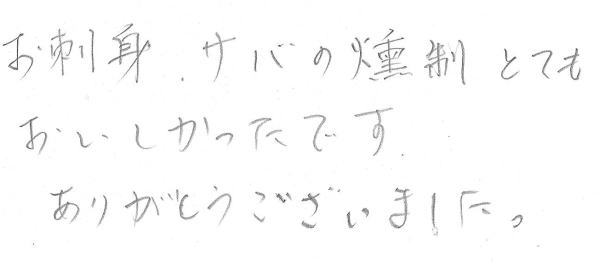 お刺身、サバの燻制とても
おいしかったです.
ありがとうございました。